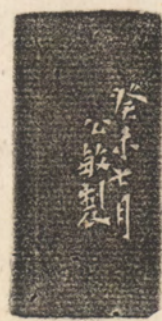 癸未七月
公敏製